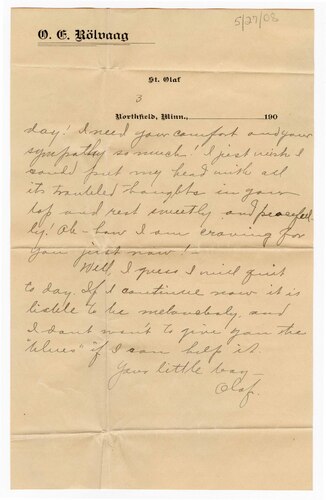 5/27/08
O. E. Rölvaag
St. Olaf
3
Northfield, Minn., 190
day! I need your comfort and your
sympathy so much! I just wish I
could put my head with all
its troubled thoughts in your
lap and rest sweetly and peaceful-
ly! Oh - how I am craving for
you just now! -
Well, I guess I will quit
to day. If I continue now it is
liable to be melancholy, and
I don't want to give you the
"blues" if I can help it.
Your little boy -
Olaf.